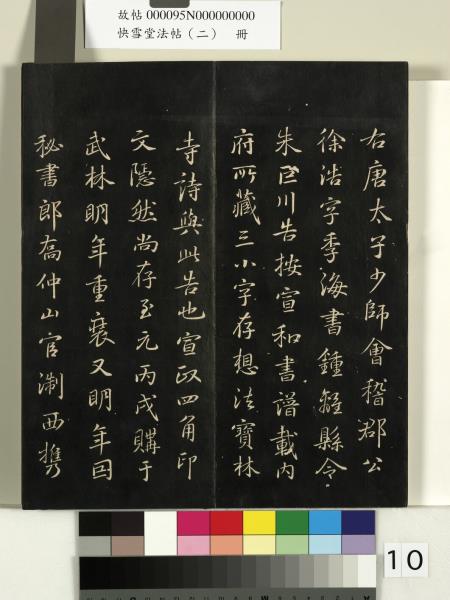 故帖 000095N000000000
快雪堂法帖（二）　冊
右唐太子少師會稽郡公
徐浩字季海書鍾離縣令
朱巨川告按宣和書譜載內
府所藏三小字存想法寶林
寺詩與此告也宣政四角印
文隱然尚存至元丙戌購于
武林明年重裝又明年因
秘書郎喬仲山官淛西携
10